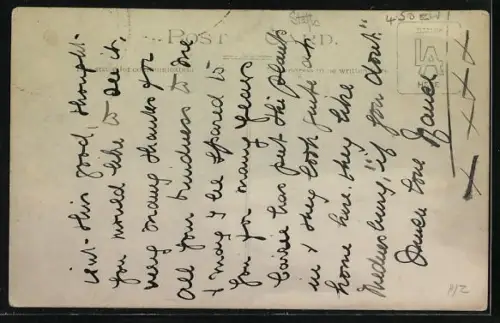 isn't this good, thought
you would like to see it,
very many thanks for
all your kindness to me
& may I be spared to
you for many years
Carrie has put the plants
in & they look quite at
home here. they like
Wednesbury, "if you don't."
Much love
x x x x
POST CARD.